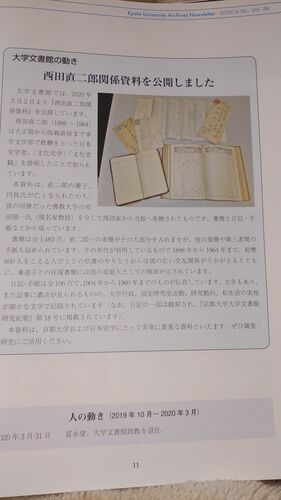 Kyoto University Archives Newsletter
2020.4.30／Vol. 38
大学文書館の動き
西田直二郎関係資料を公開しました
大学文書館では、2020年
3月2日より『西田直二郎関
係資料』を公開しています。
西田直二郎（1886～1964）
は大正期から敗戦直後まで本
学文学部で教鞭をとった日本
史学者。「文化史学」「文化史
観」を提唱したことで知られ
ています。
本資料は、直二郎の養子、
円我氏が亡くなられたのち、
彼の同僚だった佛教大学の原
田敬一氏（現名誉教授）を介して西田家から当館へ寄贈されたものです。書簡と日記・手
帳などから成っています。
書簡は全1,483点。直二郎への来簡がその大部分を占めますが、彼の発簡や第三者間の
手紙も収められています。その年代が判明しているもので1898年から1964年まで、総勢
600人をこえる人びととの信書のやりとりからは彼の広い交友関係がうかがえるととも
に、妻直子との往復書簡には彼の家庭人としての側面が示されています。
日記・手帳は全106点で、1904年から1960年までのものが伝存しています。欠年もあり、
また記事に濃淡が見られるものの、大学行政、国史研究室活動、研究動向、私生活の実相
が細かな文字で記録されています（なお、日記の一部は翻刻され、『京都大学大学文書館
研究紀要』第18号に掲載されています）。
本資料は、京都大学および日本史学にとって非常に貴重な資料といえます。ぜひ調査・
研究にご活用ください。
人の動き（2019年10月～2020年3月）
020年3月31日 冨永望、大学文書館助教を退任。
11